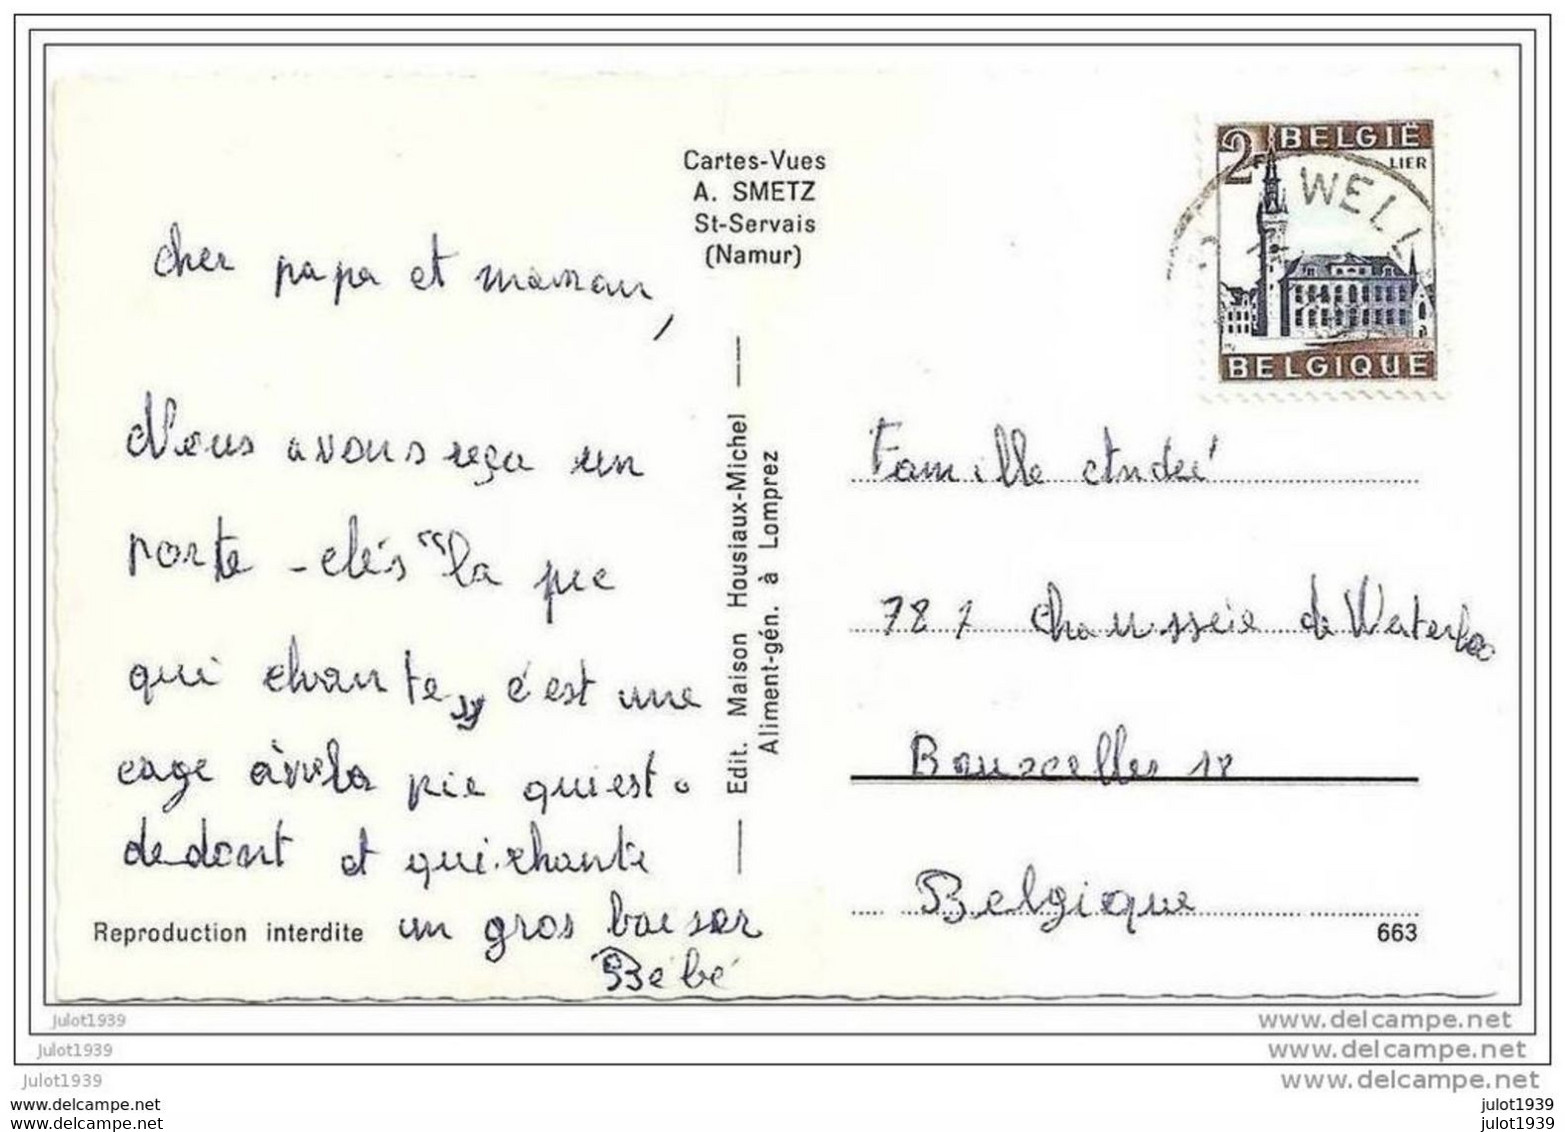 Cartes-Vues
A. SMETZ
St-Servais
(Namur)
2F BELGIË
LIER
WELL
BELGIQUE
cher papa et maman,
Nous avons reçu un
porte-clés "la pie
qui chante" c'est une
cage avec la pie qui est
dedant et qui chante
un gros baiser
Bébé
Reproduction interdite
Edit. Maison Housiaux-Michel
Aliment-gén. à Lomprez
Famille André
787 chaussée de Waterloo
Bruxelles 18
Belgique
663
julot1939
www.delcampe.net
julot1939
www.delcampe.net
julot1939
www.delcampe.net
www.delcampe.net
julot1939
www.delcampe.net
julot1939